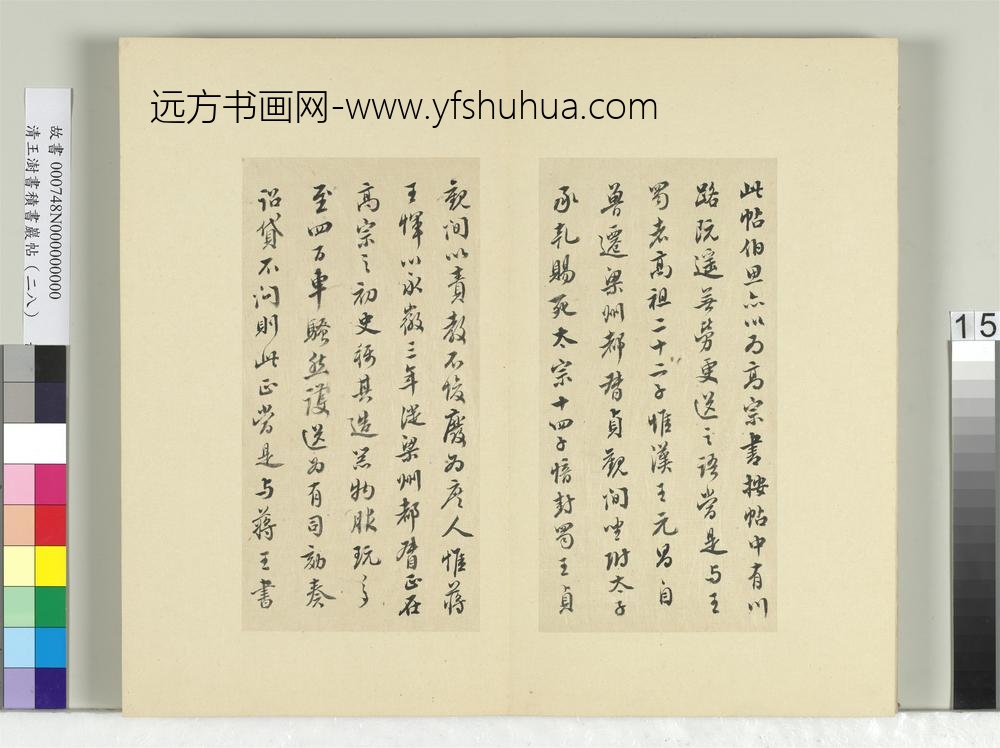 远方书画网-www.yfshuhua.com
此帖伯思亦以为高宗書按帖中有川
路阮遥無勞更送之語當是与王
蜀者高祖二十二子惟漢王元昌自
魯遷梁州都督貞觀间坐附太子
承乾賜死太宗十四子愔封蜀王貞
觀间以責教不悛廢为庶人惟蒋
王惲以永徽三年從梁州都督正在
高宗之初史称其造器物服玩多
至四百車騷然護送为有司劾奏
詔貸不问則此正當是与蒋王書
故書 000748N000000000
清王澍書積書巖帖（二八）
15